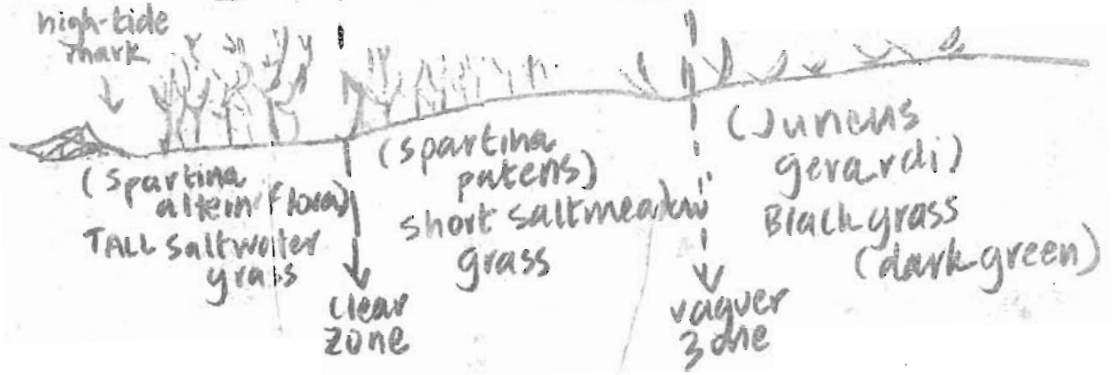 high-tide
mark
(Spartina
alterniflora)
TALL saltwater
grass
clear
zone
(spartina
patens)
short saltmeadow
grass
vaguer
zone
(Juncus
gerardi)
Black grass
(dark green)